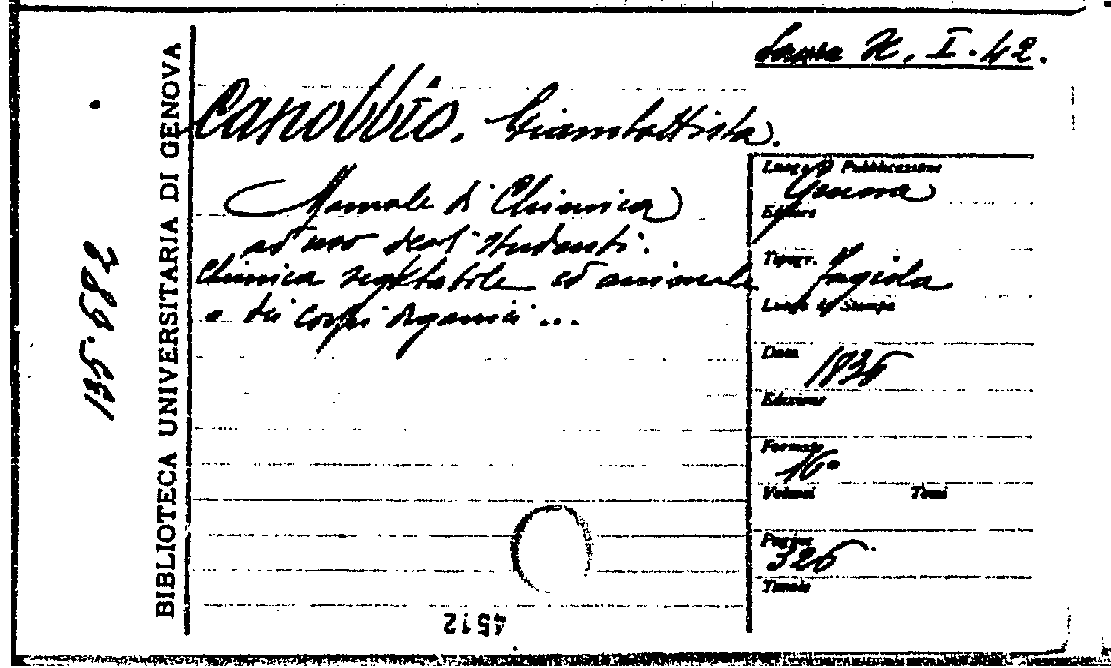 Sassa H. I. 42.
Canobbio. Giambattista.
Manuale di Chimica
ad uso degl' studenti.
Chimica vegetabile ed animale
o dei corpi organici ...
Luogo di Pubblicazione
Genova
Editore
Tipogr. Fagiola
Luogo di Stampa
Data 1835
Edizione
Formato
16°
Volumi Tomi
Pagine
325
Tavole
BIBLIOTECA UNIVERSITARIA DI GENOVA
135.582
4512